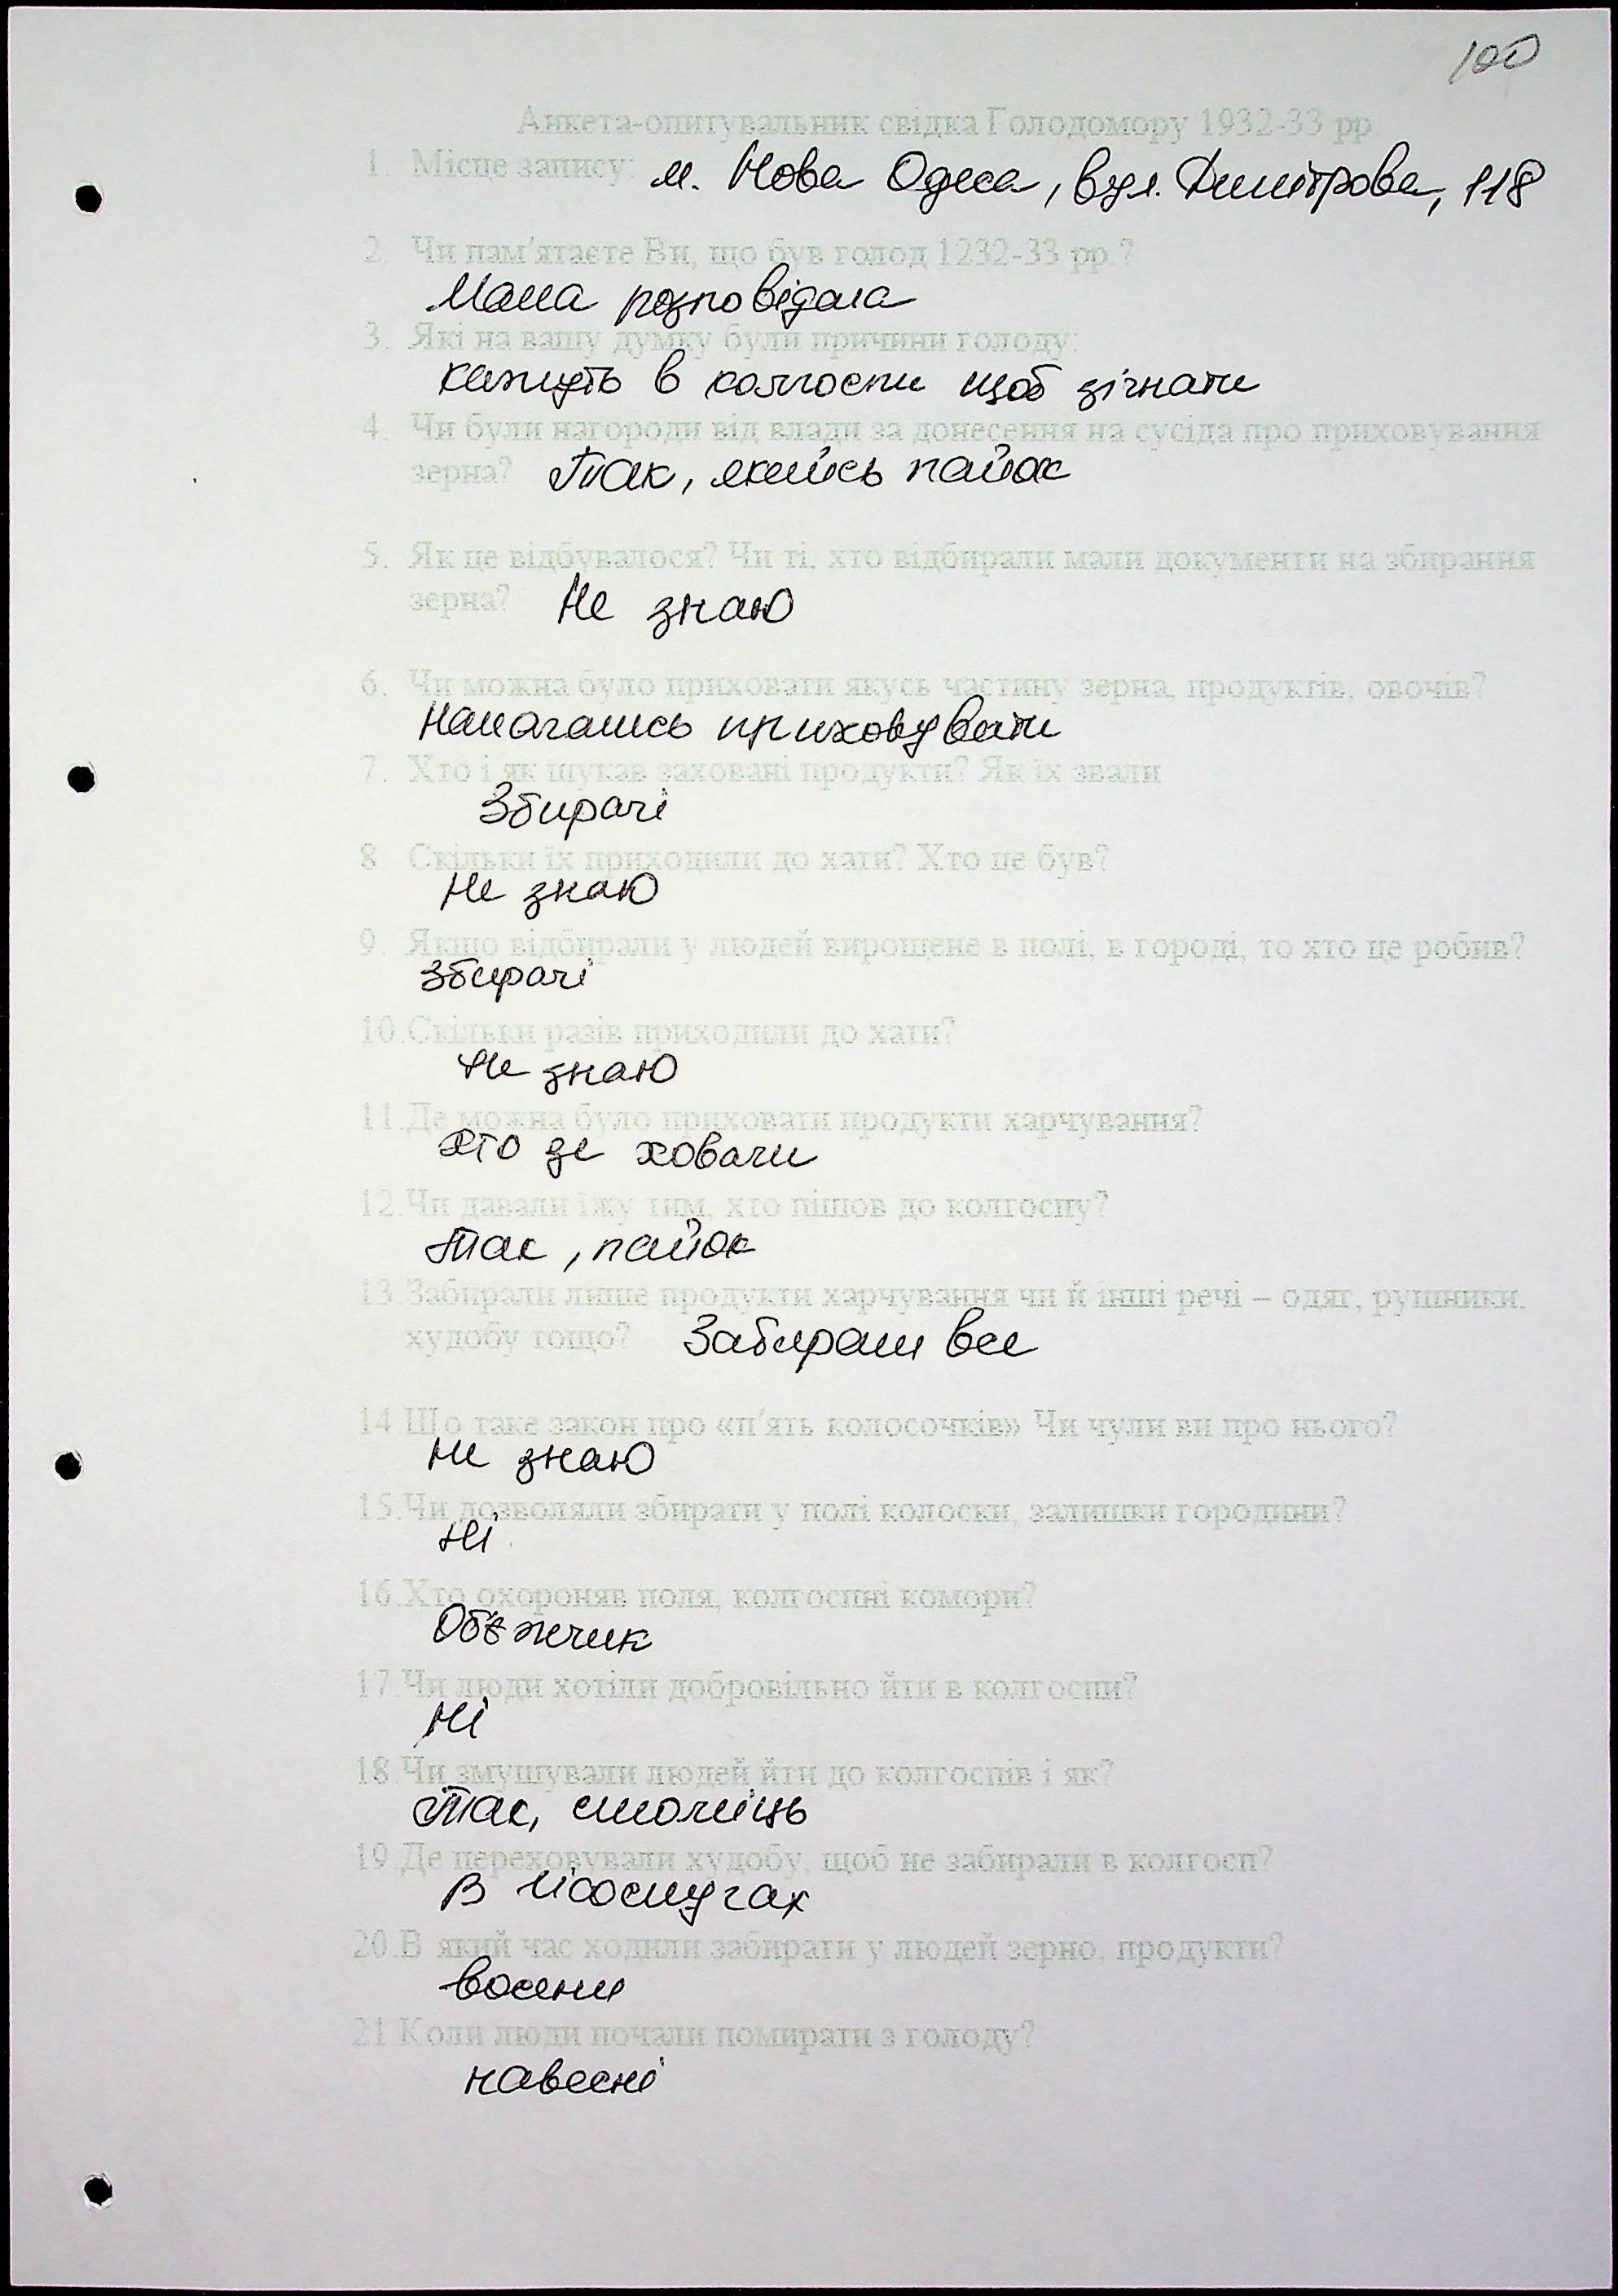 100
Анкета-опитувальник свідка Голодомору 1932-33 рр
1. Місце запису: м. Нова Одеса, вул. Димітрова, 118
2. Чи пам'ятаєте Ви, що був голод 1232-33 рр.?
Мама розповідала
3. Які на вашу думку були причини голоду:
кажуть в колгоспи щоб зігнати
4. Чи були нагороди від влади за донесення на сусіда про приховування
зерна? Так, якийсь пайок
5. Як це відбувалося? Чи ті, хто відбирали мали документи на збирання
зерна? Не знаю
6. Чи можна було приховати якусь частину зерна, продуктів, овочів?
Намагались приховувати
7. Хто і як шукав заховані продукти? Як їх звали
Збирачі
8 Скільки їх приходили до хати? Хто це був?
Не знаю
9. Якщо відбирали у людей вирощене в полі, в городі, то хто це робив?
Збирачі
10.Скільки разів приходили до хати?
Не знаю
11.Де можна було приховати продукти харчування?
Хто де ховали
12.Чи давали їжу тим, хто пішов до колгоспу?
Так, пайок
13.Забирали лише продукти харчування чи й інші речі – одяг, рушники,
худобу тощо? Забирали все
14.Що таке закон про «п'ять колосочків» Чи чули ви про нього?
Не знаю
15.Чи дозволяли збирати у полі колоски, залишки городини?
Ні
16.Хто охороняв поля, колгоспні комори?
Об'єжчик
17.Чи люди хотіли добровільно йти в колгоспи?
Ні
18.Чи змушували людей йти до колгоспів і як?
Так,
19.Де переховували худобу, щоб не забирали в колгосп?
В лісосмугах
20.В який час ходили забирати у людей зерно, продукти?
восени
21.Коли люди почали помирати з голоду?
навесні